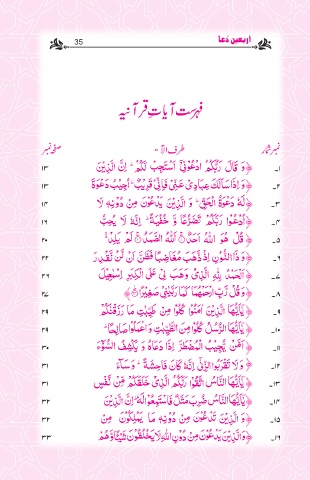 اربعین دُعا
35
فہرست آیاتِ قرآنیہ
نمبر شمار طرف الآیۃ صفحہ نمبر
۱۔ ﴿وَ قَالَ رَبُّكُمُ ادْعُوْنِیْۤ اَسْتَجِبْ لَكُمْ ؕ اِنَّ الَّذِیْنَ ۱۳
۲۔ ﴿وَ اِذَا سَاَلَكَ عِبَادِیْ عَنِّیْ فَاِنِّیْ قَرِیْبٌ ؕ اُجِیْبُ دَعْوَةَ ۱۳
۳۔ ﴿لَهٗ دَعْوَةُ الْحَقِّ ؕ وَ الَّذِیْنَ یَدْعُوْنَ مِنْ دُوْنِهٖ لَا ۱۴
۴۔ ﴿اُدْعُوْا رَبَّكُمْ تَضَرُّعًا وَّ خُفْیَةً ؕ اِنَّهٗ لَا یُحِبُّ ۱۶
۵۔ ﴿قُلْ هُوَ اللّٰهُ اَحَدٌ ۚ اَللّٰهُ الصَّمَدُ ۚ لَمْ یَلِدْ ۙ ۲۰
۶۔ ﴿وَ ذَا النُّوْنِ اِذْ ذَّهَبَ مُغَاضِبًا فَظَنَّ اَنْ لَّنْ نَّقْدِرَ ۲۲
۷۔ ﴿اَلْحَمْدُ لِلّٰهِ الَّذِیْ وَهَبَ لِیْ عَلَی الْكِبَرِ اِسْمٰعِیْلَ ۲۶
۸۔ ﴿وَ قُلْ رَّبِّ ارْحَمْهُمَا كَمَا رَبَّیٰنِیْ صَغِیْرًا﴾ ۲۷
۹۔ ﴿یٰۤاَیُّهَا الَّذِیْنَ اٰمَنُوْا كُلُوْا مِنْ طَیِّبٰتِ مَا رَزَقْنٰكُمْ ۲۹
۱۰۔ ﴿یٰۤاَیُّهَا الرُّسُلُ كُلُوْا مِنَ الطَّیِّبٰتِ وَ اعْمَلُوْا صَالِحًا ؕ ۲۹
۱۱۔ ﴿اَمَّنْ یُّجِیْبُ الْمُضْطَرَّ اِذَا دَعَاهُ وَ یَكْشِفُ السُّوْٓءَ ۳۰
۱۲۔ ﴿وَ لَا تَقْرَبُوا الزِّنٰۤی اِنَّهٗ كَانَ فَاحِشَةً ؕ وَ سَآءَ ۳۱
۱۳۔ ﴿یٰۤاَیُّهَا النَّاسُ اتَّقُوْا رَبَّكُمُ الَّذِیْ خَلَقَكُمْ مِّنْ نَّفْسٍ ۳۱
۱۴۔ ﴿یٰۤاَیُّهَا النَّاسُ ضُرِبَ مَثَلٌ فَاسْتَمِعُوْا لَهٗ ؕ اِنَّ الَّذِیْنَ ۳۲
۱۵۔ ﴿وَ الَّذِیْنَ تَدْعُوْنَ مِنْ دُوْنِهٖ مَا یَمْلِكُوْنَ مِنْ ۳۲
۱۶۔ ﴿وَ الَّذِیْنَ یَدْعُوْنَ مِنْ دُوْنِ اللّٰهِ لَا یَخْلُقُوْنَ شَیْـًٔا وَّ هُمْ ۳۳